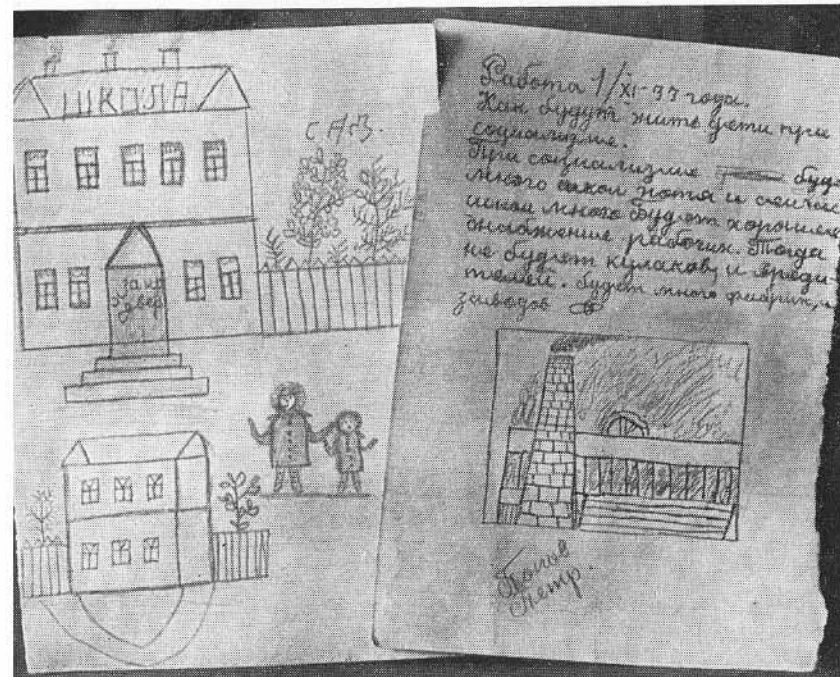 ШКОЛА
САД.
закр
двер
Работа 1/XI-33 года.
Как будут жить дети при
социализме.
При социализме буд
много школ хотя и сейчас
школ много будет хорошее
снабжение рабочих. Тогда
не будет кулаков, и вреди-
телей. будет много фабрик, и
заводов
Попов
Петр.